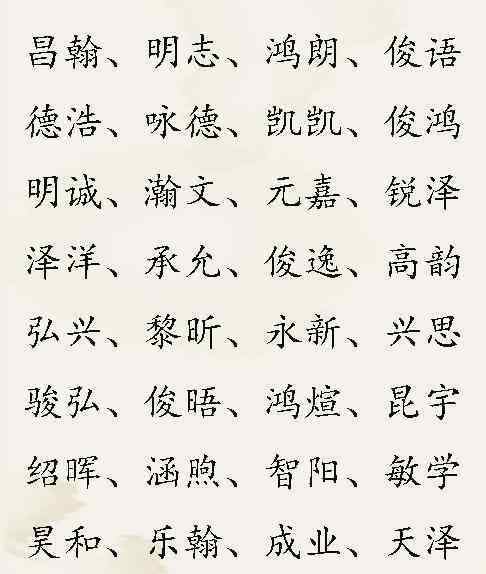 昌翰、明志、鸿朗、俊语
德浩、咏德、凯凯、俊鸿
明诚、瀚文、元嘉、锐泽
泽洋、承允、俊逸、高韵
弘兴、黎昕、永新、兴思
骏弘、俊晤、鸿煊、昆宇
绍晖、涵煦、智阳、敏学
昊和、乐翰、成业、天泽